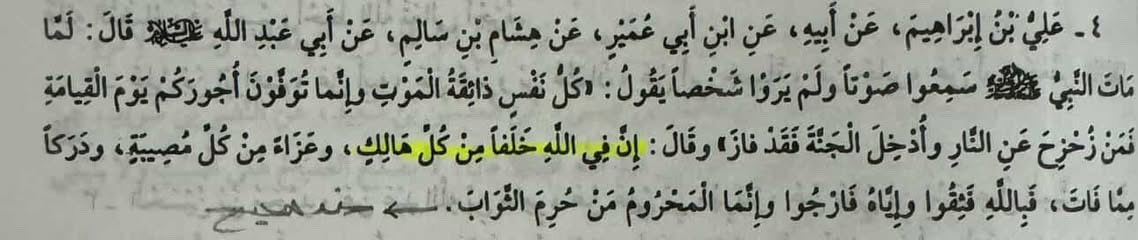 ٤ ـ عَلِيُّ بْنُ إِبْرَاهِيمَ، عَنْ أَبِيهِ، عَنِ ابْنِ أَبِي عُمَيْرٍ، عَنْ هِشَامِ بْنِ سَالِمٍ، عَنْ أَبِي عَبْدِ اللَّهِ عَلَيْهِ السَّلَامُ قَالَ: لَمَّا
مَاتَ النَّبِيُّ ﷺ سَمِعُوا صَوْتاً ولَمْ يَرَوْا شَخْصاً يَقُولُ: «كُلُّ نَفْسٍ ذائِقَةُ الْمَوْتِ وإِنَّما تُوَفَّوْنَ أُجُورَكُمْ يَوْمَ الْقِيامَةِ
فَمَنْ زُحْزِحَ عَنِ النَّارِ وأُدْخِلَ الْجَنَّةَ فَقَدْ فازَ» وقَالَ: إِنَّ فِي اللَّهِ خَلَفاً مِنْ كُلِّ هَالِكٍ، وعَزَاءً مِنْ كُلِّ مُصِيبَةٍ، ودَرَكاً
مِمَّا فَاتَ، فَبِاللَّهِ فَثِقُوا وإِيَّاهُ فَارْجُوا وإِنَّمَا الْمَحْرُومُ مَنْ حُرِمَ الثَّوَابَ.